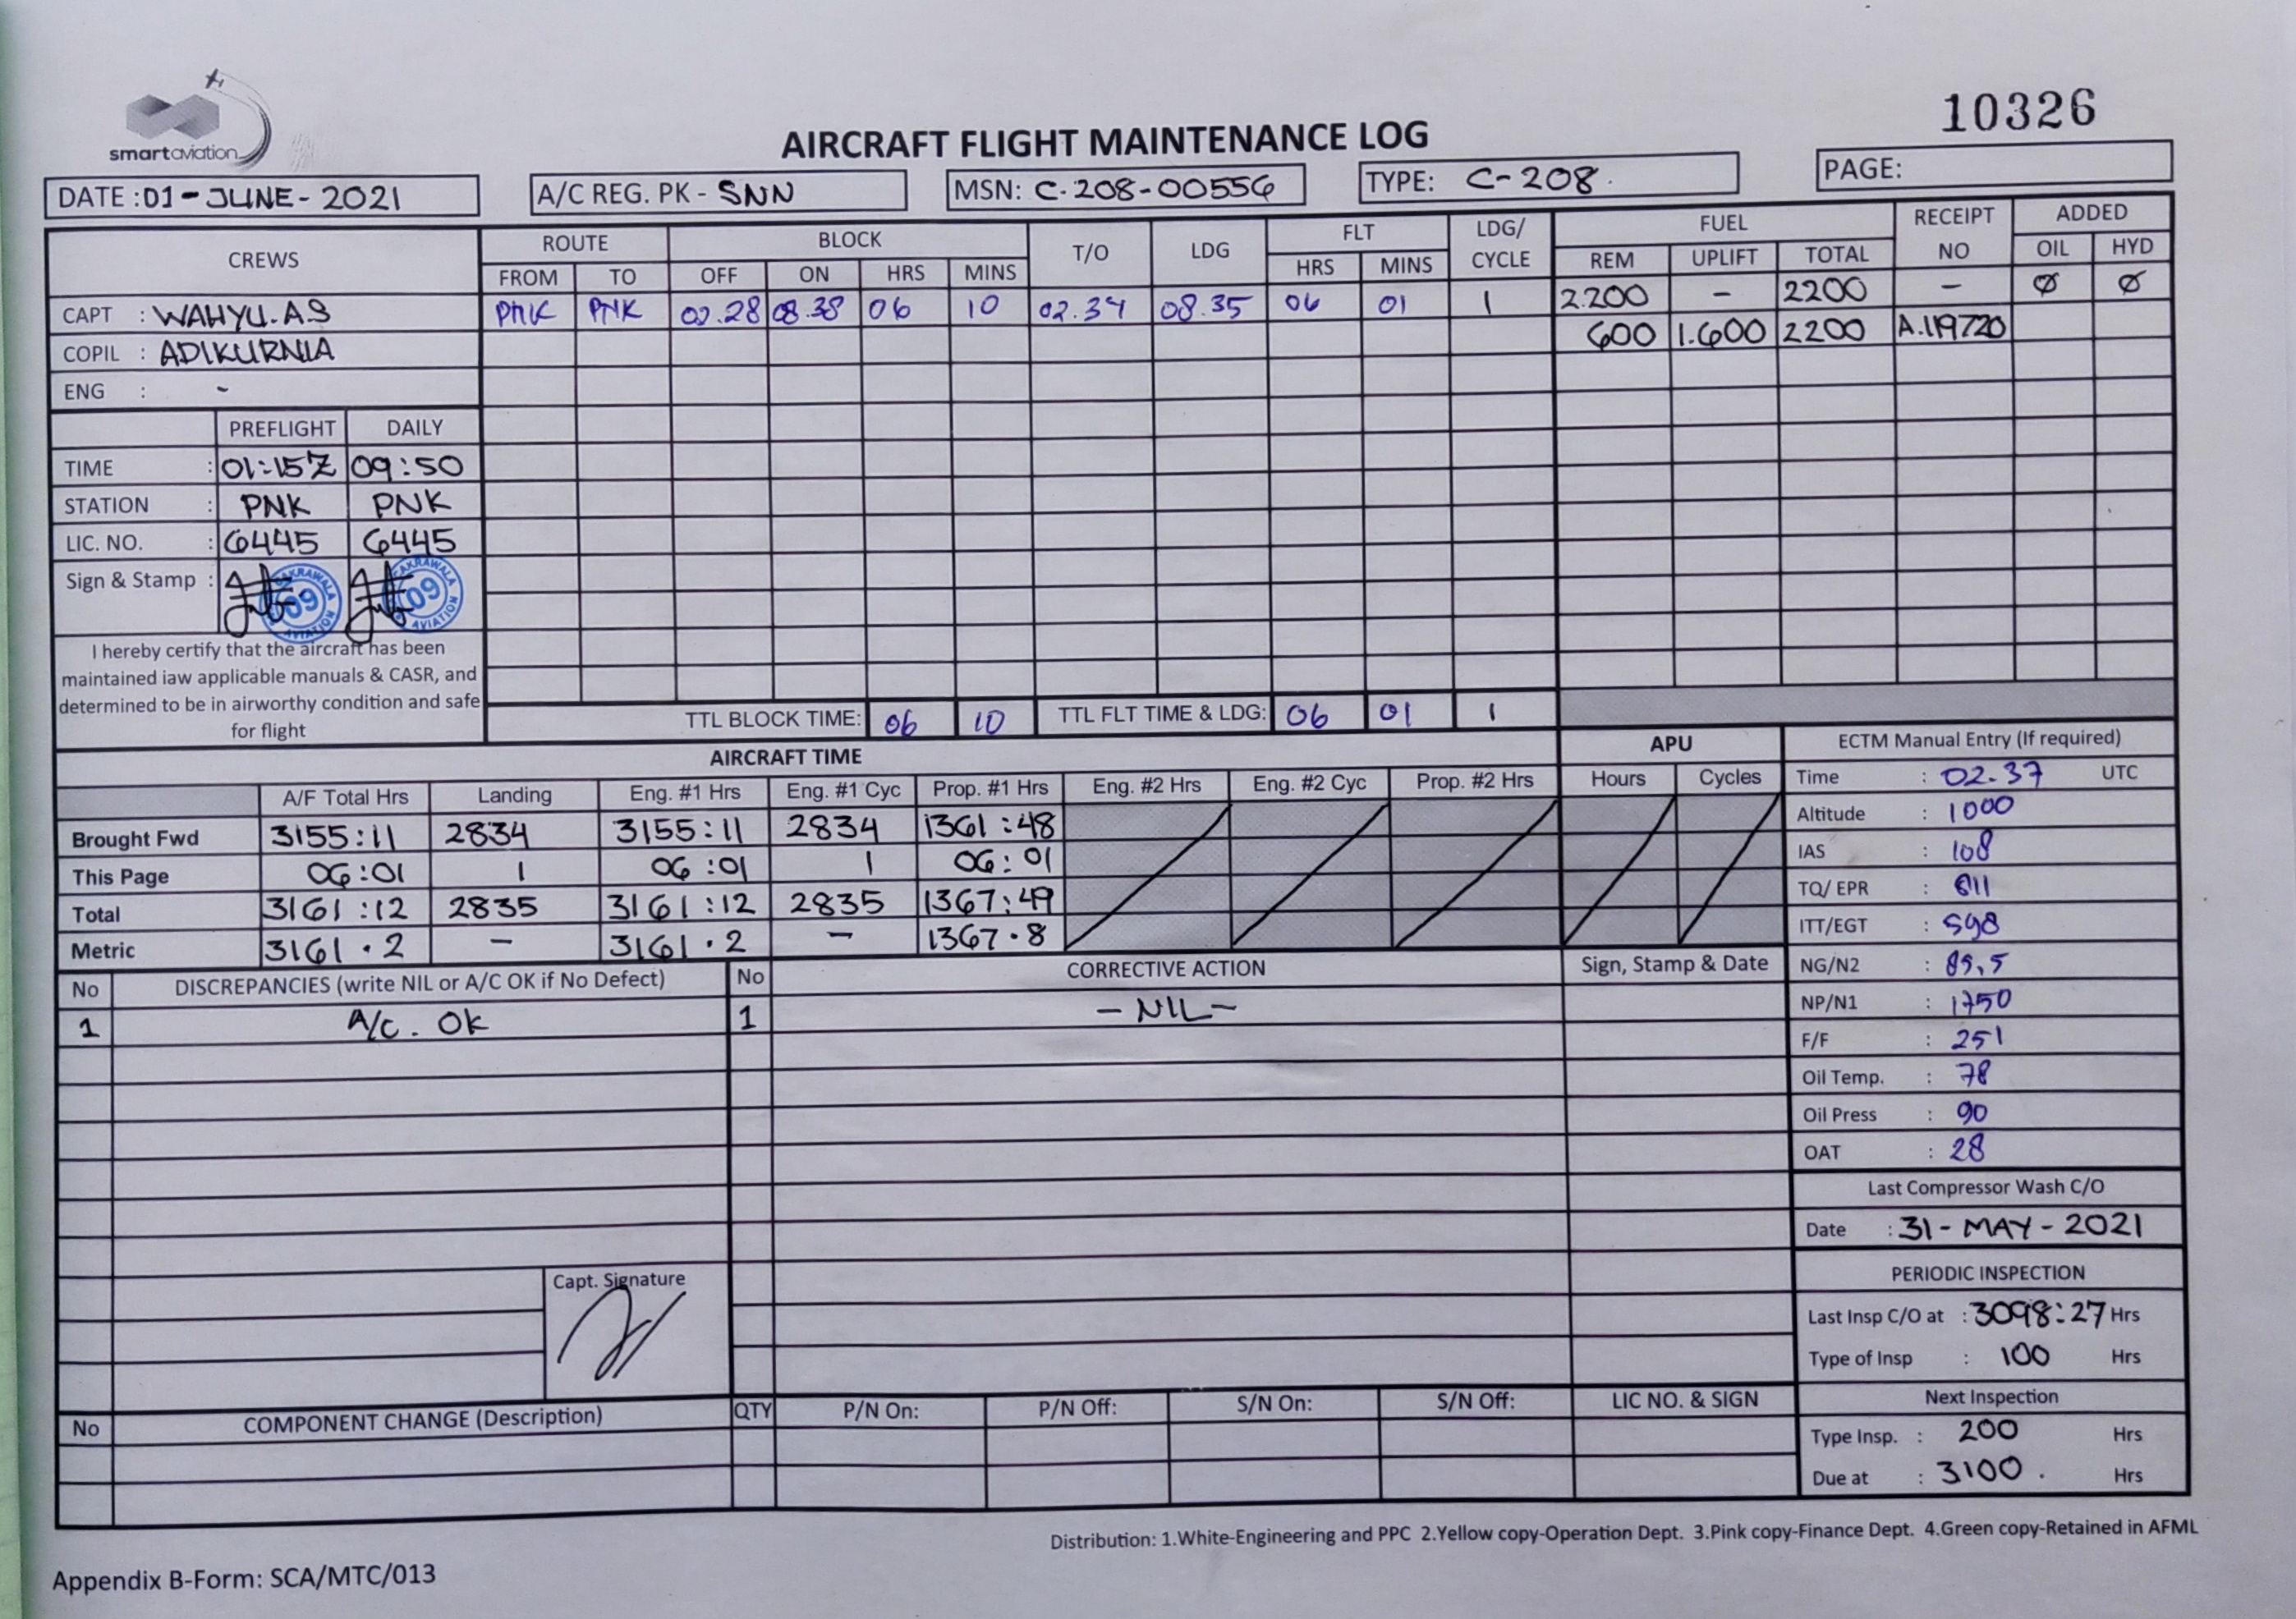 smartaviation
10326
AIRCRAFT FLIGHT MAINTENANCE LOG
DATE : 01-JUNE-2021 A/C REG. PK - SNN MSN: C-208-00556 TYPE: C-208. PAGE:
CREWS ROUTE BLOCK T/O LDG FLT LDG/ CYCLE FUEL RECEIPT NO ADDED
FROM TO OFF ON HRS MINS HRS MINS REM UPLIFT TOTAL OIL HYD
CAPT : WAHYU.AS PNK PNK 02.28 08.38 06 10 02.34 08.35 06 01 1 2.200 - 2200 - Ø Ø
COPIL : ADIKURNIA 600 1.600 2200 A.119720
ENG : -
PREFLIGHT DAILY
TIME : 01:15Z 09:50
STATION : PNK PNK
LIC. NO. : 6445 6445
Sign & Stamp : 09 AVIATION 09 AVIATION
I hereby certify that the aircraft has been
maintained iaw applicable manuals & CASR, and
determined to be in airworthy condition and safe
for flight
TTL BLOCK TIME: 06 10 TTL FLT TIME & LDG: 06 01 1
AIRCRAFT TIME APU ECTM Manual Entry (If required)
A/F Total Hrs Landing Eng. #1 Hrs Eng. #1 Cyc Prop. #1 Hrs Eng. #2 Hrs Eng. #2 Cyc Prop. #2 Hrs Hours Cycles
Brought Fwd 3155:11 2834 3155:11 2834 1361:48
This Page 06:01 1 06:01 1 06:01
Total 3161:12 2835 3161:12 2835 1367:49
Metric 3161.2 - 3161.2 - 1367.8
Time : 02.37 UTC
Altitude : 1000
IAS : 108
TQ/ EPR :
ITT/EGT : 598
NG/N2 : 89,5
NP/N1 : 1750
F/F : 251
Oil Temp. : 78
Oil Press : 90
OAT : 28
No DISCREPANCIES (write NIL or A/C OK if No Defect) No CORRECTIVE ACTION Sign, Stamp & Date
1 A/C. OK 1 - NIL -
Last Compressor Wash C/O
Date : 31-MAY-2021
PERIODIC INSPECTION
Last Insp C/O at : 3098:27 Hrs
Type of Insp : 100 Hrs
Next Inspection
Type Insp. : 200 Hrs
Due at : 3100. Hrs
Capt. Signature
No COMPONENT CHANGE (Description) QTY P/N On: P/N Off: S/N On: S/N Off: LIC NO. & SIGN
Distribution: 1.White-Engineering and PPC 2.Yellow copy-Operation Dept. 3.Pink copy-Finance Dept. 4.Green copy-Retained in AFML
Appendix B-Form: SCA/MTC/013